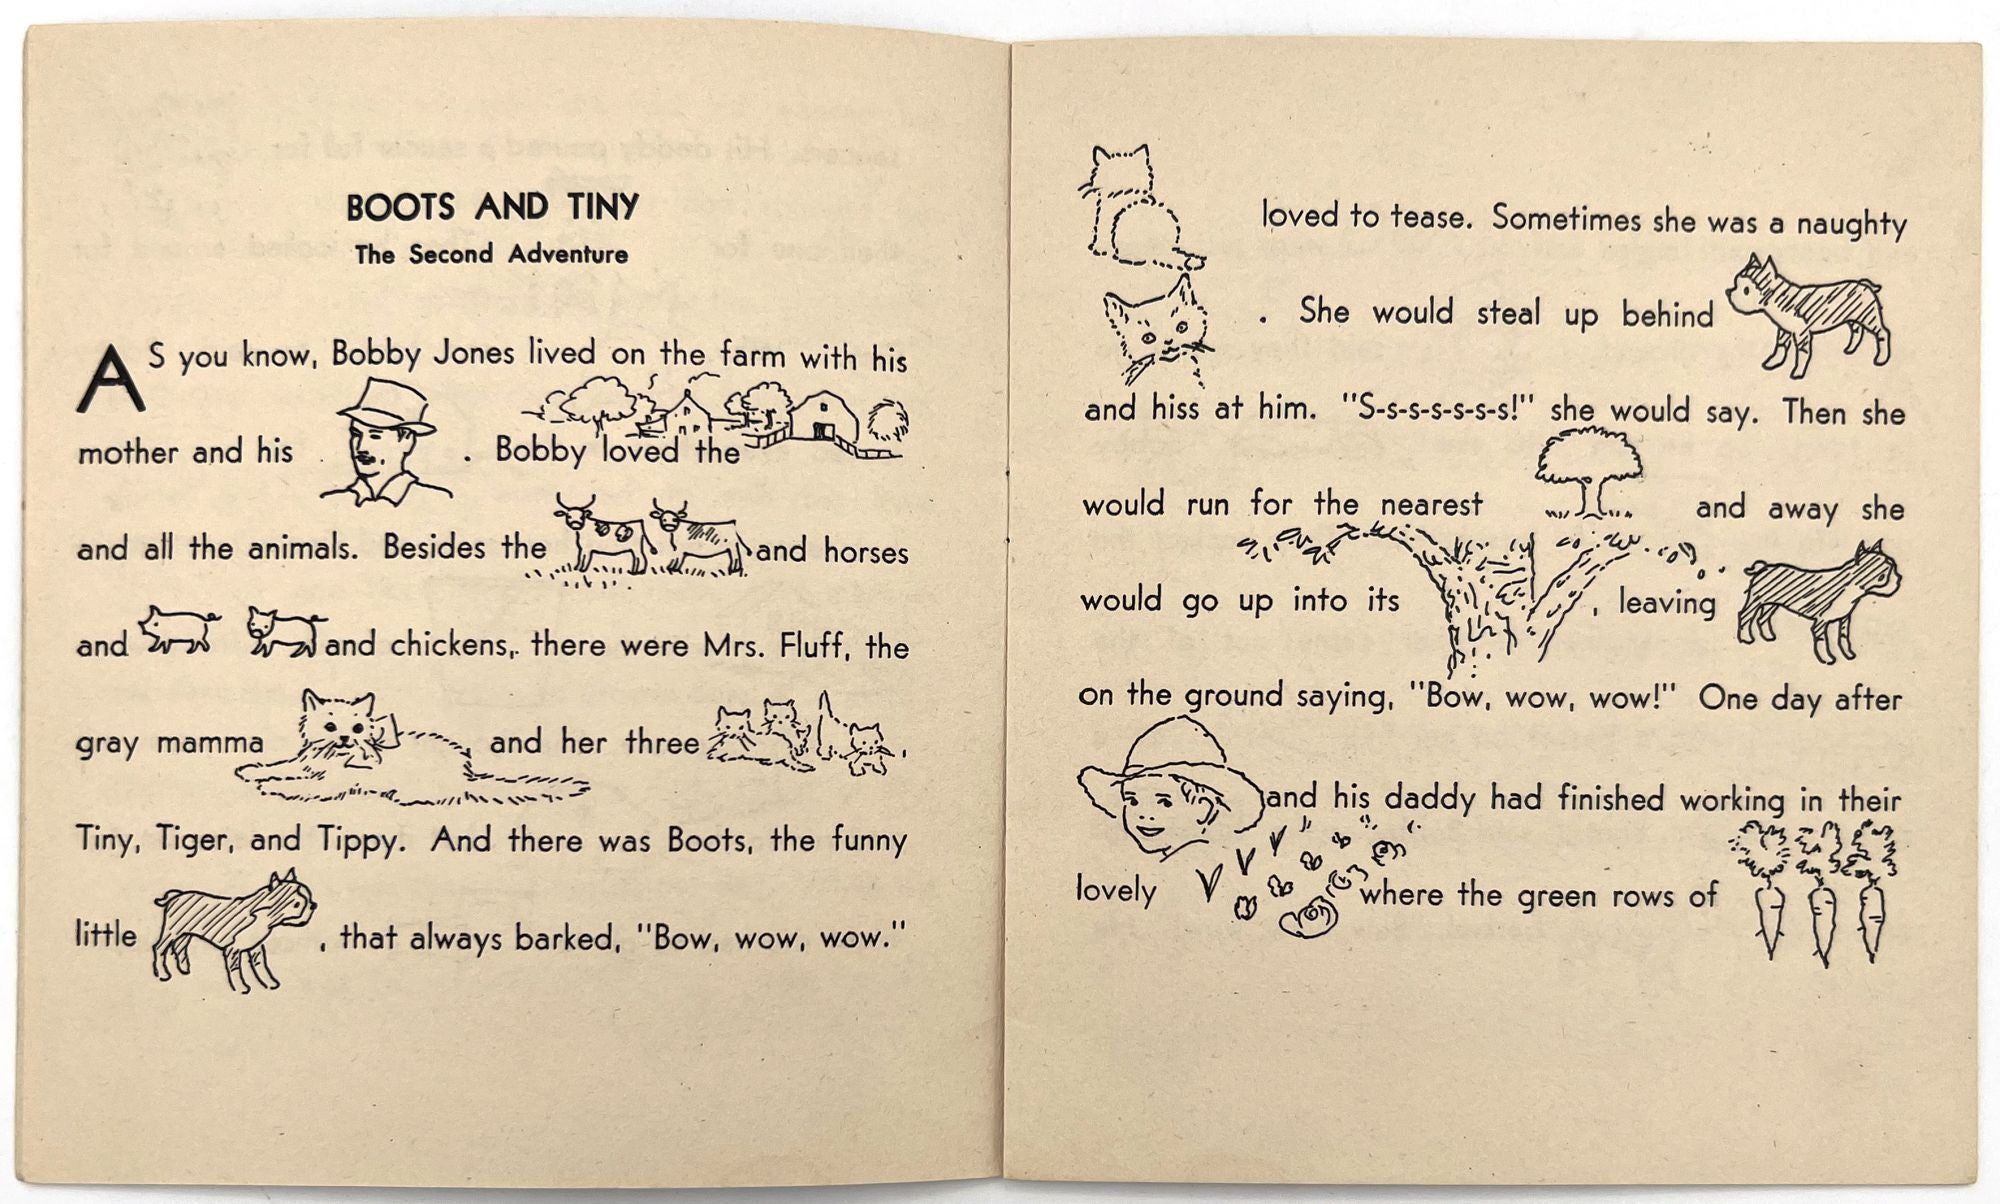 BOOTS AND TINY
The Second Adventure
AS you know, Bobby Jones lived on the farm with his
mother and his . Bobby loved the
and all the animals. Besides the and horses
and and chickens, there were Mrs. Fluff, the
gray mamma and her three ,
Tiny, Tiger, and Tippy. And there was Boots, the funny
little , that always barked, "Bow, wow, wow."
loved to tease. Sometimes she was a naughty
. She would steal up behind
and hiss at him. "S-s-s-s-s-s-s!" she would say. Then she
would run for the nearest and away she
would go up into its , leaving
on the ground saying, "Bow, wow, wow!" One day after
and his daddy had finished working in their
lovely where the green rows of